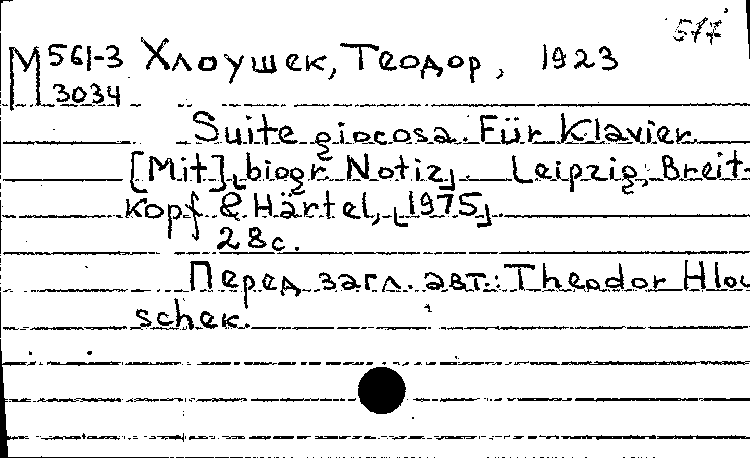 517
М 561-3 Хлоушек, Теодор, 1923
3034
Suite giocosa. Für Klavier.
[Mit] biogr. Notiz. Leipzig, Breit-
kopf & Härtel, [1975].
28 с.
Перед загл. авт.: Theodor Hlou
schek.